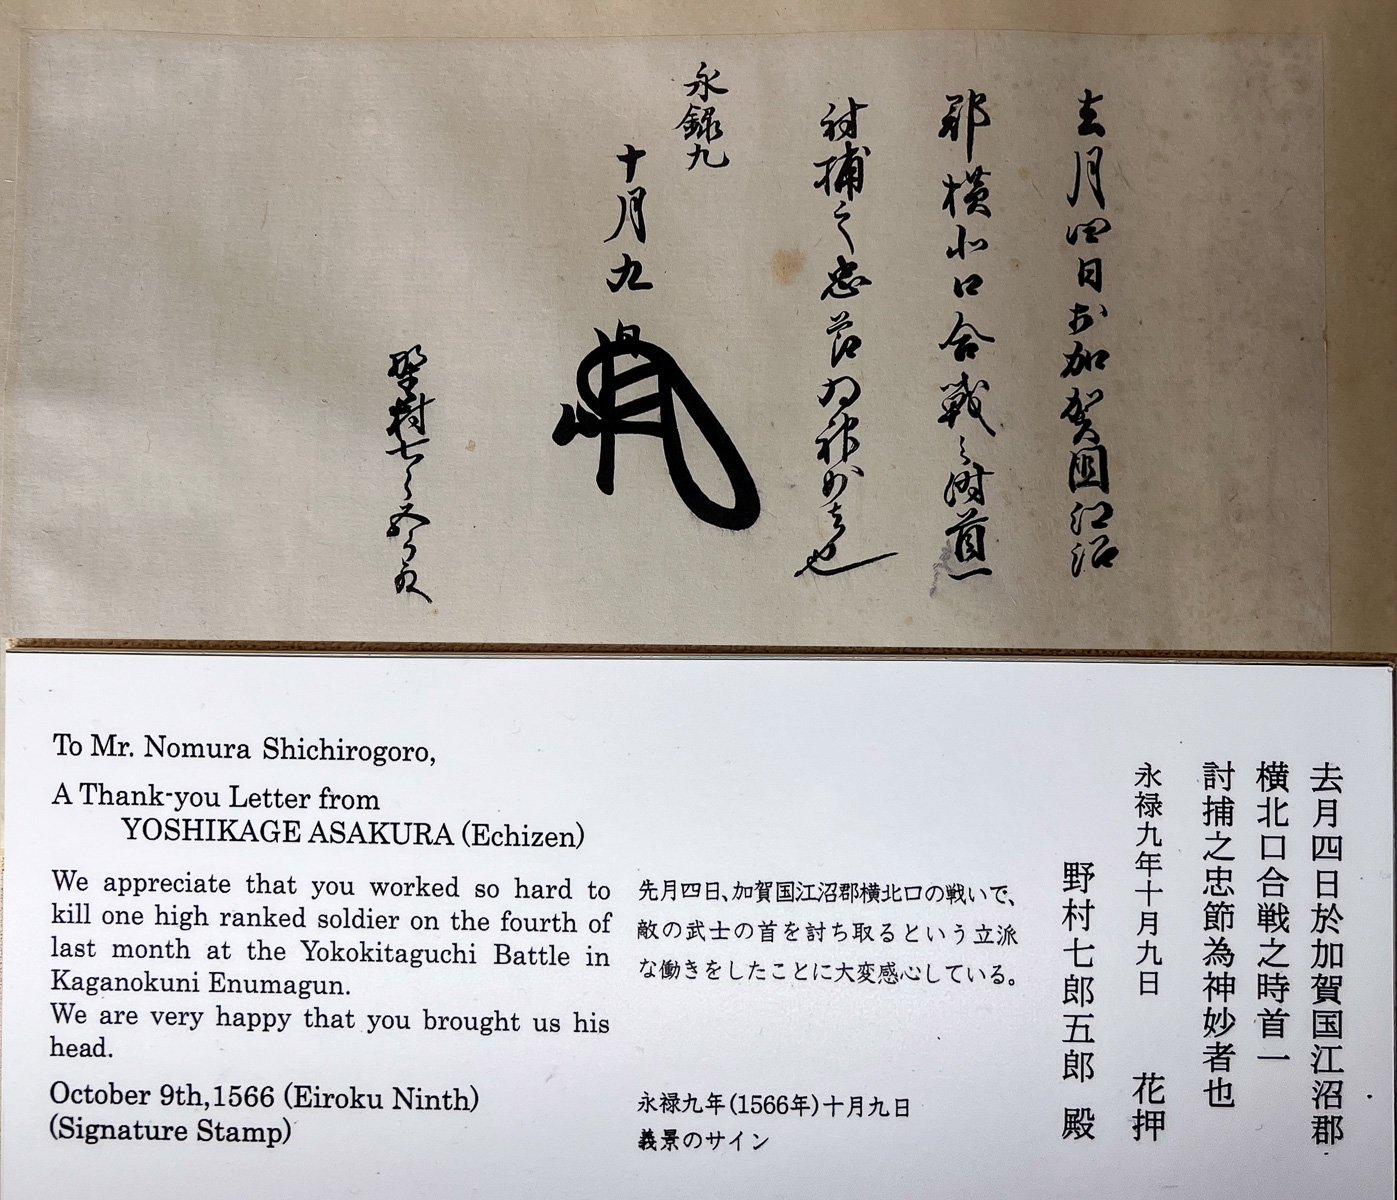 去月四日於加賀国江沼
郡横北口合戦之時首一
討捕之忠節尤神妙候也
永禄九
十月九日
野村七郎五郎殿
To Mr. Nomura Shichirogoro,
A Thank-you Letter from
YOSHIKAGE ASAKURA (Echizen)
We appreciate that you worked so hard to
kill one high ranked soldier on the fourth of
last month at the Yokokitaguchi Battle in
Kaganokuni Enumagun.
We are very happy that you brought us his
head.
October 9th,1566 (Eiroku Ninth)
(Signature Stamp)
先月四日、加賀国江沼郡横北口の戦いで、
敵の武士の首を討ち取るという立派
な働きをしたことに大変感心している。
永禄九年(1566年)十月九日
義景のサイン
去月四日於加賀国江沼郡
横北口合戦之時首一
討捕之忠節為神妙者也
永禄九年十月九日 花押
野村七郎五郎 殿